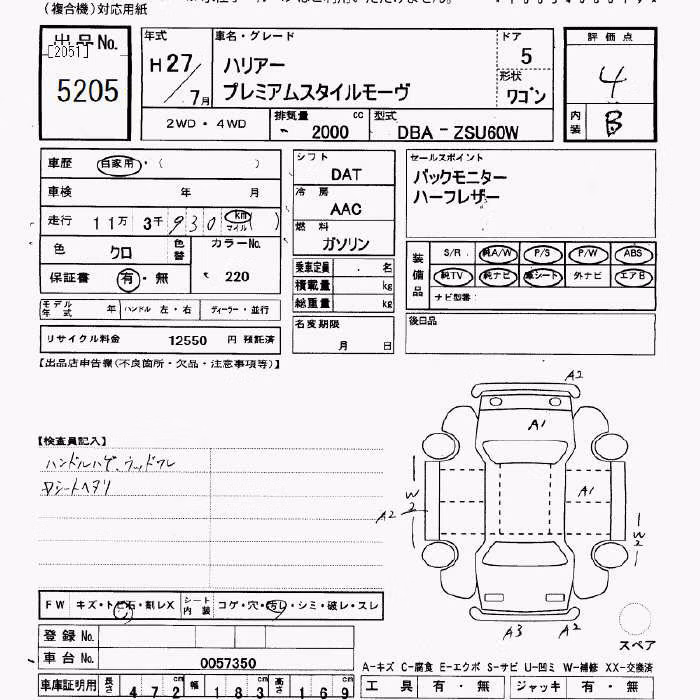 (複合機)対応用紙
出品No.
[2051]
5205
年式
H27/7月
車名・グレード
ハリアー
プレミアムスタイルモーヴ
ドア
5
形状
ワゴン
評価点
4
内装
B
2WD・4WD
排気量
2000 cc
型式
DBA-ZSU60W
車歴 自家用・( )
車検 年 月
走行 11万 3千 930 km マイル ( )
色 クロ
色替
カラーNo.
220
保証書 有・無
シフト
DAT
冷房
AAC
燃料
ガソリン
乗車定員 . 名
積載量 kg
総重量 kg
セールスポイント
バックモニター
ハーフレザー
装備品
S/R 純A/W P/S P/W ABS
純TV 純ナビ 革シート 外ナビ エアB
ナビ型番:
モデル年式 年 ハンドル 左・右 ディーラー・並行
名変期限
月 日
後日品
リサイクル料金 12550 円 預託済
【出品店申告欄(不良箇所・欠品・注意事項等)】
【検査員記入】
ハンドルハゲ、ウッドワレ
シートヘタリ
A2
A1
A1
A2
W2
W2
A3 A2
スペア
FW キズ・トビ石・割レX シート内装 コゲ・穴・汚レ・シミ・破レ・スレ
登録No.
車台No. 0057350
車庫証明用 長さ 472cm 幅 183cm 高さ 169cm
A-キズ C-腐食 E-エクボ S-サビ U-凹ミ W-補修 XX-交換済
工具 有・無 ジャッキ 有・無